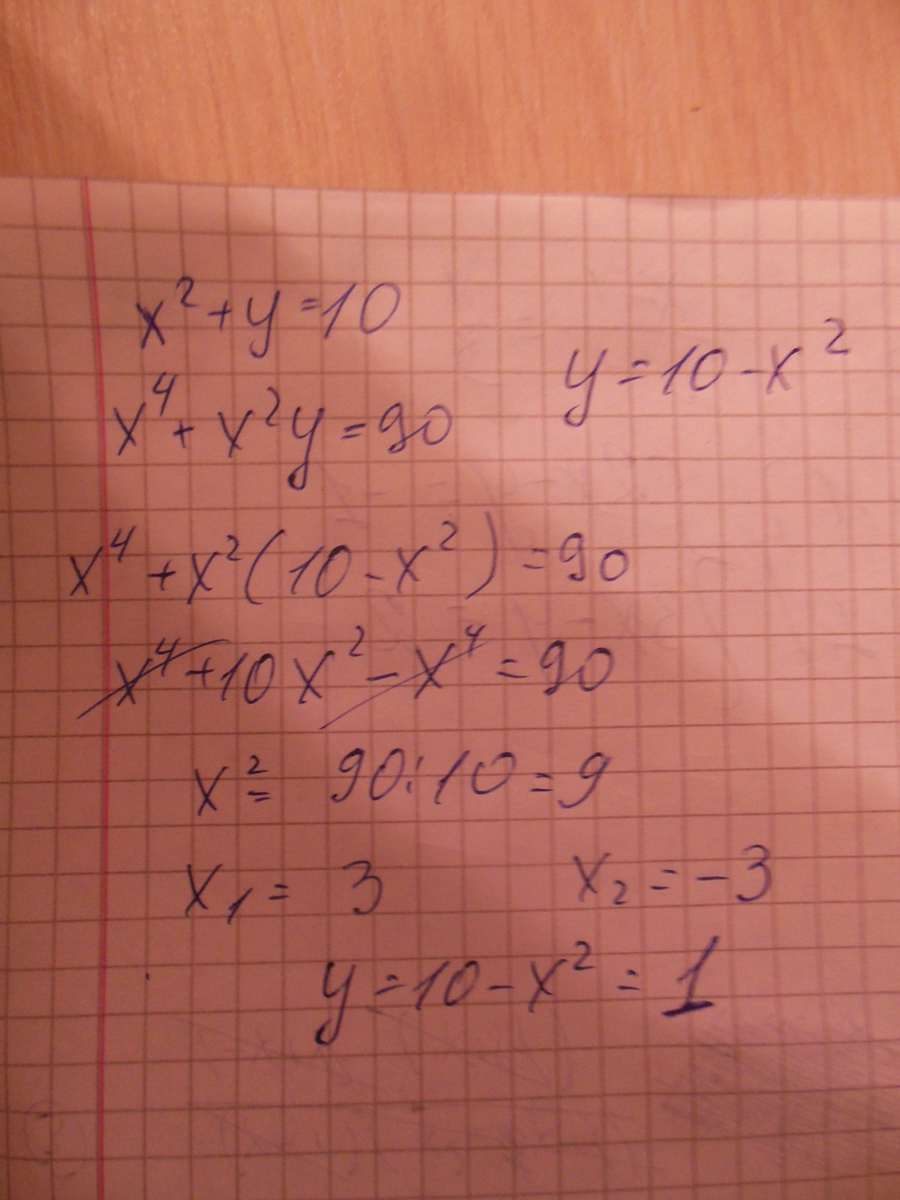 x² + y = 10
y = 10 - x²
x⁴ + x²y = 90
x⁴ + x²(10 - x²) = 90
x⁴ + 10x² - x⁴ = 90
x² = 90:10 = 9
x₁ = 3 x₂ = -3
y = 10 - x² = 1